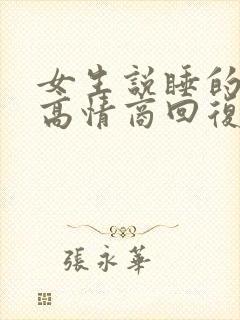 女生説睡的
高情商回復
張永華